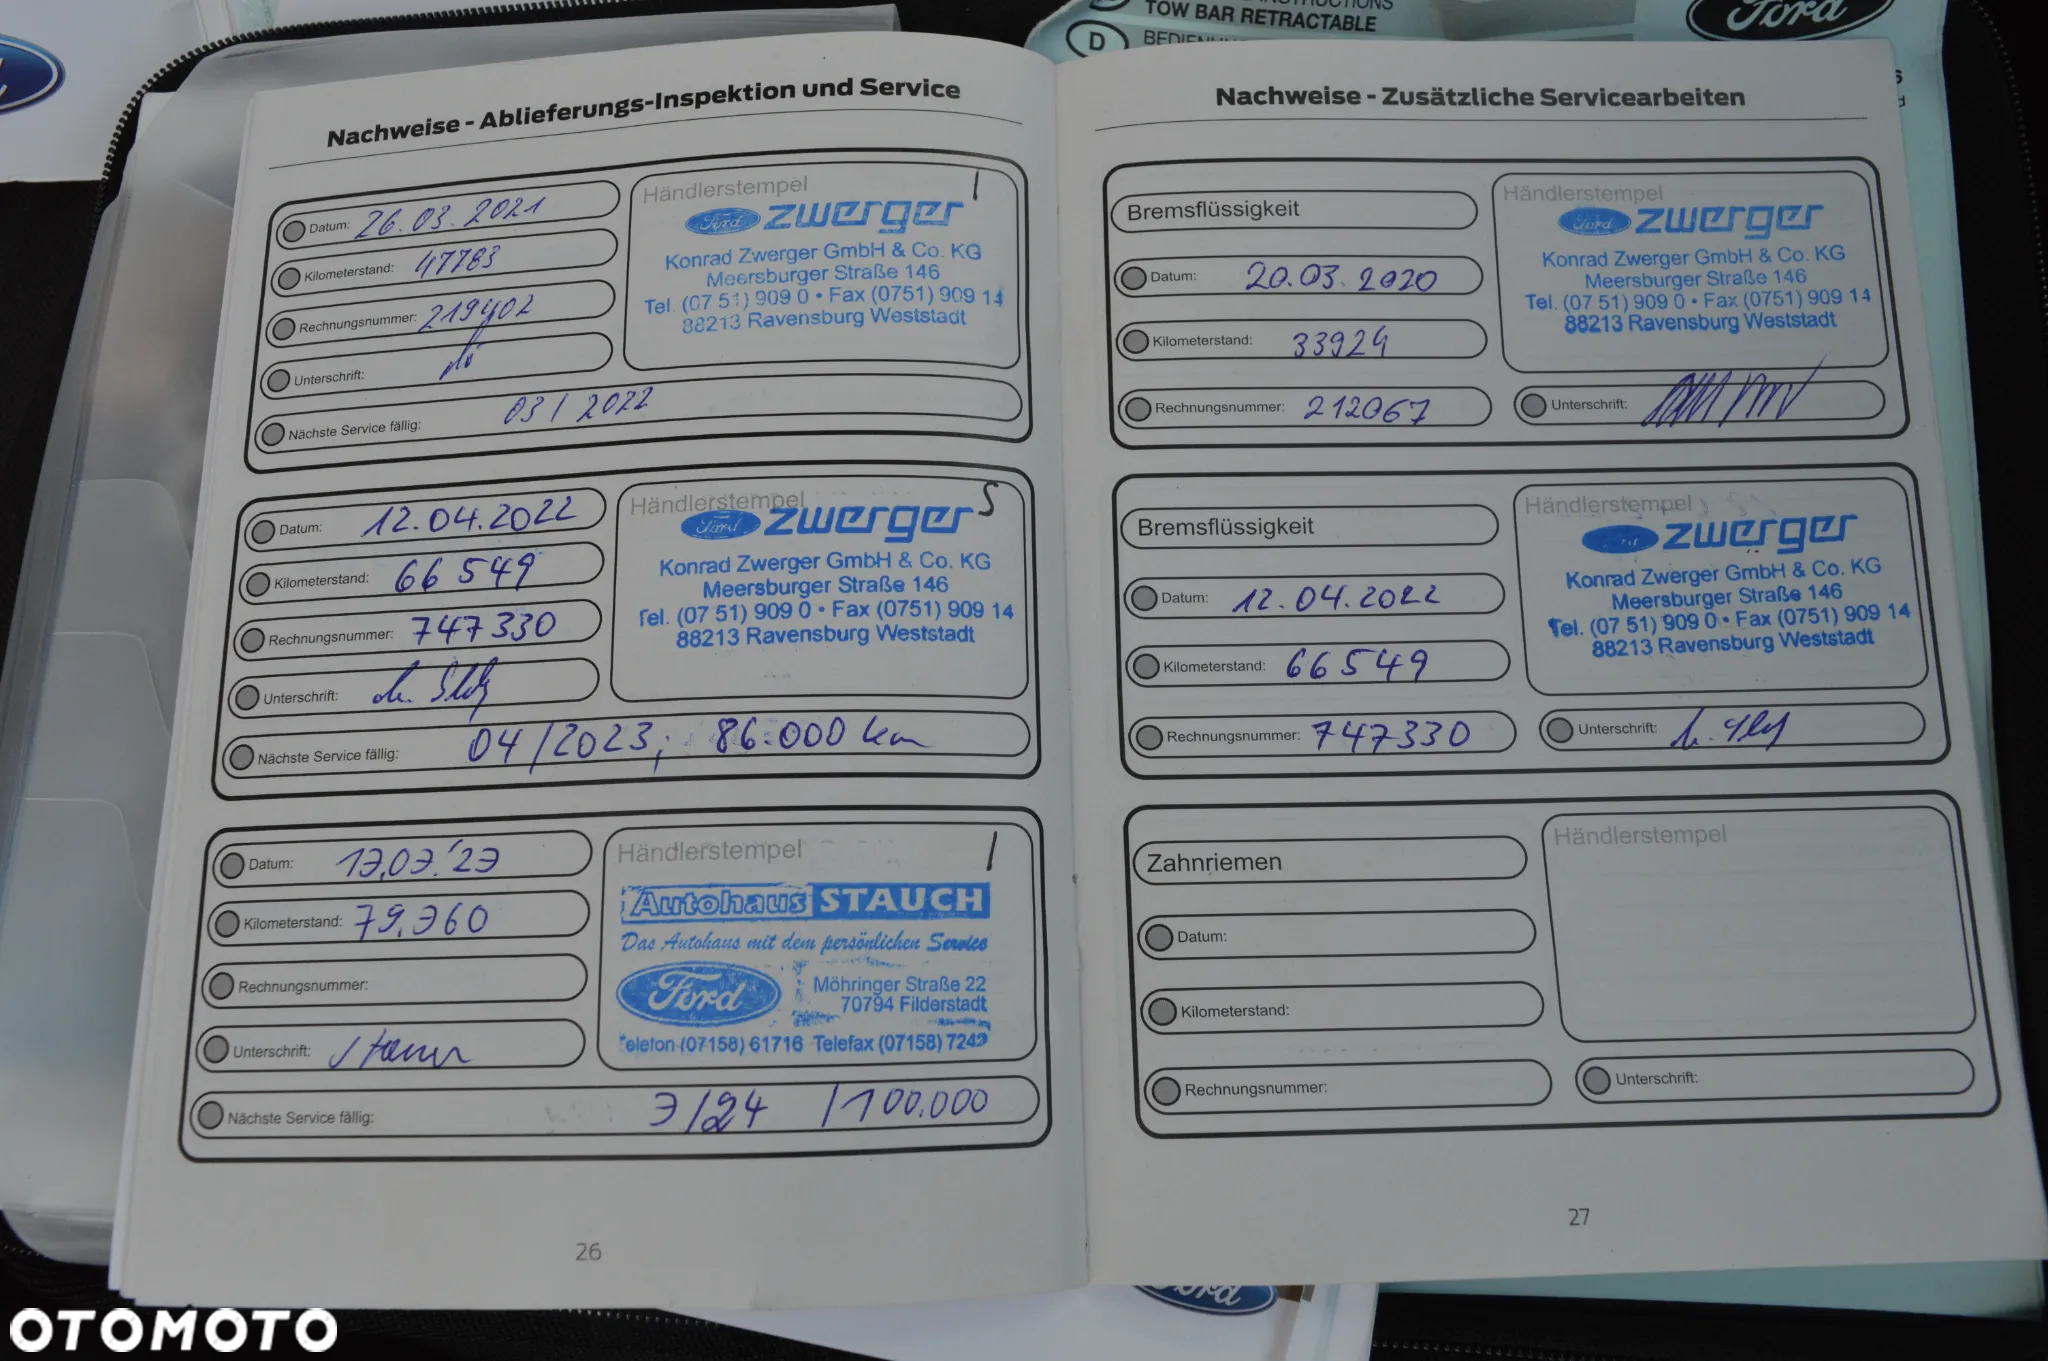 INSTRUCTIONS
TOW BAR RETRACTABLE
D
Ford
Nachweise - Ablieferungs-Inspektion und Service
Datum: 26.03.2021
Kilometerstand: 47783
Rechnungsnummer: 219402
Unterschrift:
Nächste Service fällig: 03/2022
Händlerstempel
1
Ford zwerger
Konrad Zwerger GmbH & Co. KG
Meersburger Straße 146
Tel. (07 51) 909 0 • Fax (0751) 909 14
88213 Ravensburg Weststadt
Datum: 12.04.2022
Kilometerstand: 66 549
Rechnungsnummer: 747330
Unterschrift:
Nächste Service fällig: 04/2023; 86.000 km
Händlerstempel
5
Ford zwerger
Konrad Zwerger GmbH & Co. KG
Meersburger Straße 146
Tel. (07 51) 909 0 • Fax (0751) 909 14
88213 Ravensburg Weststadt
Datum: 13.03.'23
Kilometerstand: 79.360
Rechnungsnummer:
Unterschrift:
Nächste Service fällig: 3/24 / 100.000
Händlerstempel
1
Autohaus STAUCH
Das Autohaus mit dem persönlichen Service
Ford
Möhringer Straße 22
70794 Filderstadt
Telefon (07158) 61716 Telefax (07158) 7242
26
Nachweise - Zusätzliche Servicearbeiten
Bremsflüssigkeit
Datum: 20.03.2020
Kilometerstand: 33924
Rechnungsnummer: 212067
Händlerstempel
Ford zwerger
Konrad Zwerger GmbH & Co. KG
Meersburger Straße 146
Tel. (07 51) 909 0 • Fax (0751) 909 14
88213 Ravensburg Weststadt
Unterschrift:
Bremsflüssigkeit
Datum: 12.04.2022
Kilometerstand: 66549
Rechnungsnummer: 747330
Händlerstempel
Ford zwerger
Konrad Zwerger GmbH & Co. KG
Meersburger Straße 146
Tel. (07 51) 909 0 • Fax (0751) 909 14
88213 Ravensburg Weststadt
Unterschrift:
Zahnriemen
Datum:
Kilometerstand:
Rechnungsnummer:
Händlerstempel
Unterschrift:
27
Ford
OTOMOTO